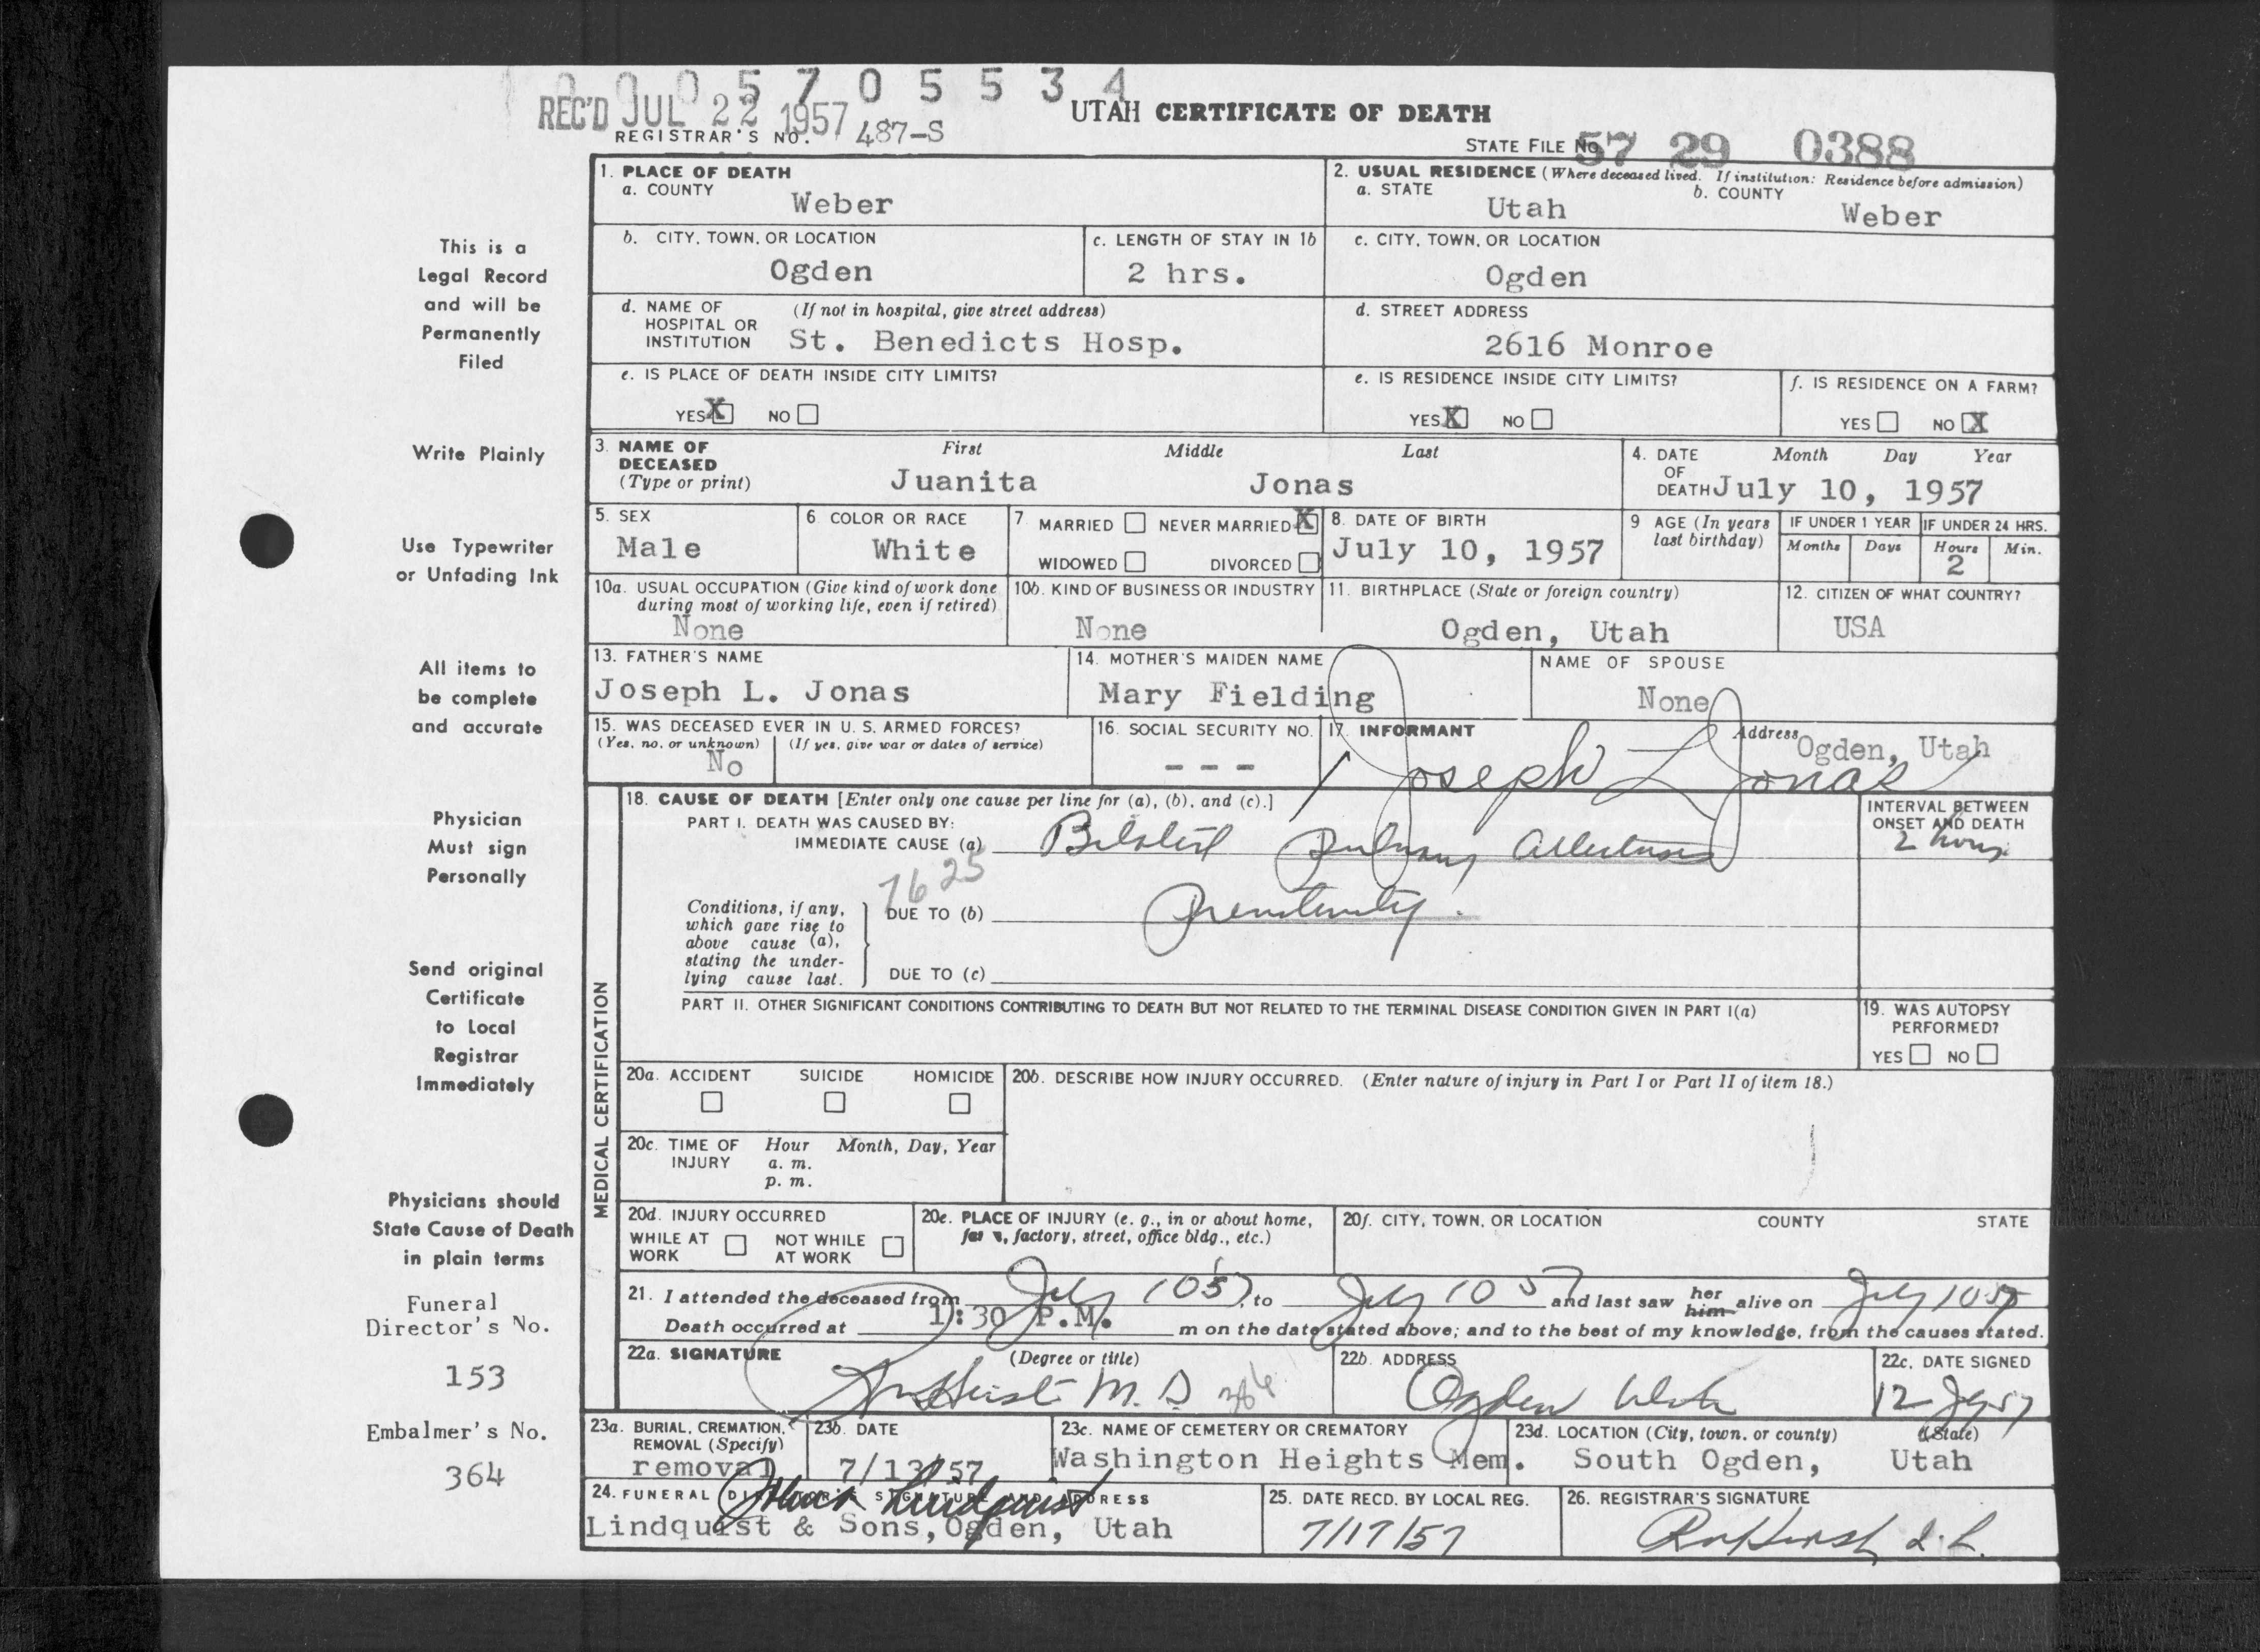 0005705534
REC'D JUL 22 1957
UTAH CERTIFICATE OF DEATH
REGISTRAR'S NO. 487-S
STATE FILE No. 57 29 0388
1. PLACE OF DEATH
a. COUNTY
Weber
2. USUAL RESIDENCE (Where deceased lived. If institution: Residence before admission)
a. STATE
Utah
b. COUNTY
Weber
b. CITY, TOWN, OR LOCATION
Ogden
c. LENGTH OF STAY IN 1b
2 hrs.
c. CITY, TOWN, OR LOCATION
Ogden
d. NAME OF HOSPITAL OR INSTITUTION (If not in hospital, give street address)
St. Benedicts Hosp.
d. STREET ADDRESS
2616 Monroe
e. IS PLACE OF DEATH INSIDE CITY LIMITS?
YES X NO
e. IS RESIDENCE INSIDE CITY LIMITS?
YES X NO
f. IS RESIDENCE ON A FARM?
YES NO X
3. NAME OF DECEASED (Type or print)
First Middle Last
Juanita Jonas
4. DATE OF DEATH Month Day Year
July 10, 1957
5. SEX
Male
6 COLOR OR RACE
White
7 MARRIED NEVER MARRIED X
WIDOWED DIVORCED
8. DATE OF BIRTH
July 10, 1957
9 AGE (In years last birthday)
IF UNDER 1 YEAR
Months Days
IF UNDER 24 HRS.
Hours Min.
2
10a. USUAL OCCUPATION (Give kind of work done during most of working life, even if retired)
None
10b. KIND OF BUSINESS OR INDUSTRY
None
11. BIRTHPLACE (State or foreign country)
Ogden, Utah
12. CITIZEN OF WHAT COUNTRY?
USA
13. FATHER'S NAME
Joseph L. Jonas
14. MOTHER'S MAIDEN NAME
Mary Fielding
NAME OF SPOUSE
None
15. WAS DECEASED EVER IN U. S. ARMED FORCES?
(Yes, no, or unknown) (If yes, give war or dates of service)
No
16. SOCIAL SECURITY NO.
---
17. INFORMANT
Joseph L Jonas
Address
Ogden, Utah
MEDICAL CERTIFICATION
18. CAUSE OF DEATH [Enter only one cause per line for (a), (b), and (c).]
INTERVAL BETWEEN ONSET AND DEATH
PART I. DEATH WAS CAUSED BY:
IMMEDIATE CAUSE (a)
2 hours
7625
Conditions, if any, which gave rise to above cause (a), stating the underlying cause last.
DUE TO (b) Prematurity.
DUE TO (c)
PART II. OTHER SIGNIFICANT CONDITIONS CONTRIBUTING TO DEATH BUT NOT RELATED TO THE TERMINAL DISEASE CONDITION GIVEN IN PART I(a)
19. WAS AUTOPSY PERFORMED?
YES NO
20a. ACCIDENT SUICIDE HOMICIDE
20b. DESCRIBE HOW INJURY OCCURRED. (Enter nature of injury in Part I or Part II of item 18.)
20c. TIME OF INJURY Hour Month, Day, Year
a. m.
p. m.
20d. INJURY OCCURRED
WHILE AT WORK NOT WHILE AT WORK
20e. PLACE OF INJURY (e. g., in or about home, factory, street, office bldg., etc.)
20f. CITY, TOWN, OR LOCATION COUNTY STATE
21. I attended the deceased from July 10 57, to July 10 57 and last saw her him alive on July 10 57
Death occurred at 1:30 P.M. m on the date stated above; and to the best of my knowledge, from the causes stated.
22a. SIGNATURE (Degree or title)
M. D.
22b. ADDRESS
Ogden Utah
22c. DATE SIGNED
12 Jy 57
23a. BURIAL, CREMATION, REMOVAL (Specify)
removal
23b. DATE
7/13/57
23c. NAME OF CEMETERY OR CREMATORY
Washington Heights Mem.
23d. LOCATION (City, town, or county) (State)
South Ogden, Utah
24. FUNERAL DIRECTOR'S SIGNATURE AND ADDRESS
Lindquist & Sons, Ogden, Utah
25. DATE RECD. BY LOCAL REG.
7/17/57
26. REGISTRAR'S SIGNATURE
This is a
Legal Record
and will be
Permanently
Filed
Write Plainly
Use Typewriter
or Unfading Ink
All items to
be complete
and accurate
Physician
Must sign
Personally
Send original
Certificate
to Local
Registrar
Immediately
Physicians should
State Cause of Death
in plain terms
Funeral
Director's No.
153
Embalmer's No.
364